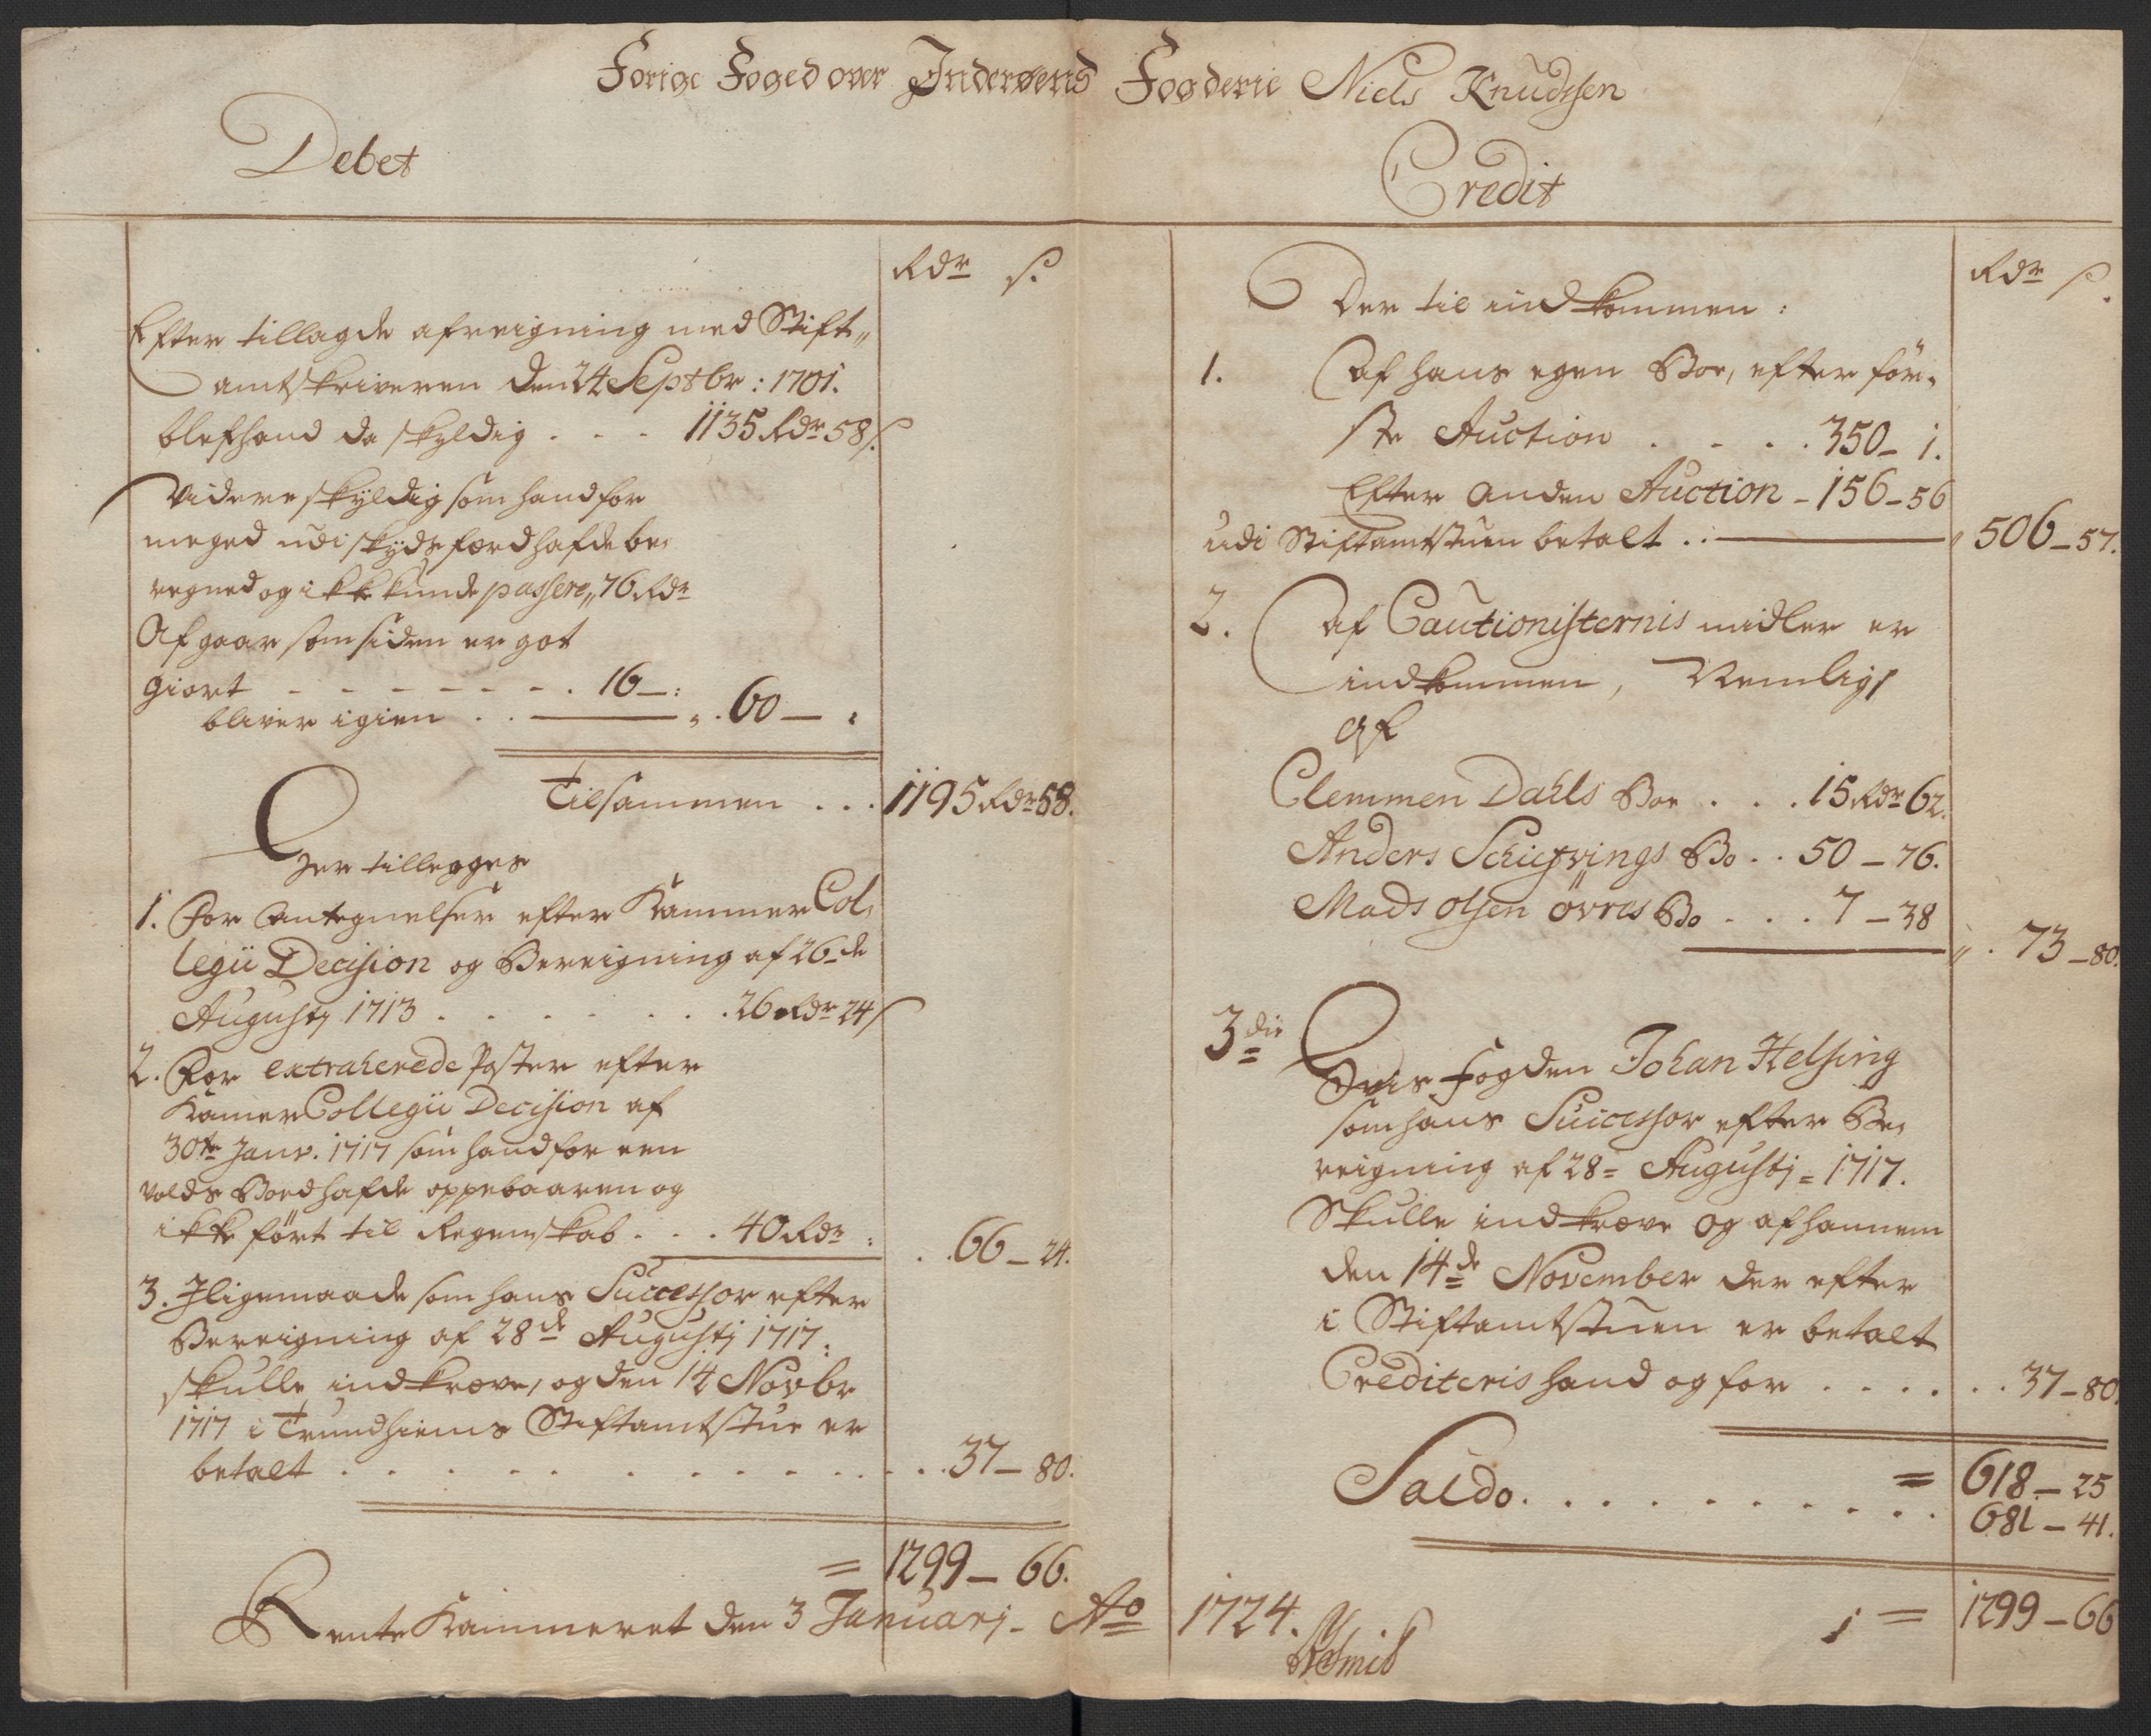 Forige Foged over Inderøens Fogderie Niels Knudssen
Debet
Rdr s.
Efter tillagde afreigning med Stift„
amtskriveren den 24 Septbr: 1701.
blef hand da skyldig . . . 1135 Rdr 58 s.
Videre skyldig som hand for
meged udi skydsfærd hafde be„
regned og ikke kunde passere „ 76 Rdr
Afgaar som siden er got
giort - - - - - - - . 16 — :
bliver igien . . ——— „ . 60 — :
Tilsammen . . . 1195 Rdr 58.
Her tillegges
1. For Antegnelser efter Kammer Col„
legii Decision og Bereigning af 26de
Augustj 1713 . . . . . . . 26 Rdr 24 s
2. For extraherede Poster efter
Kamer Collegii Decision af
30te Janv. 1717 som hand for een
volds Boed hafde oppebaaren og
ikke ført til Regenskab . . . 40 Rdr : . . 66 – 24.
3. Iligemaade som hans Successor efter
Bereigning af 28de Augustj 1717:
skulle indkræve, og den 14 Novbr
1717 i Trundhiems Stiftamtstue er
betalt . . . . . . . . . . . . . 37 – 80.
= 1299 – 66.
Rente Kammeret den 3 Januarj – Ao 1724.
Credit
Rdr s.
Der til indkommen:
1. Af hans egen Boe, efter før„
ste Auction . . . . 350 – 1.
Efter Anden Auction – 156 – 56
udi Stiftamtstuen betalt . : ——— „ 506 – 57.
2. Af Cautionisternis midler er
indkommen, Nemligs
af
Clemmen Dahls Boe . . . 15 Rdr 62.
Anders Schiefvings Bo . . 50 – 76.
Mads Olsen Øvres Bo . . . 7 – 38
„ . 73 – 80.
3die Hvis Fogden Johan Helsing
som hans Successor efter Be„
reigning af 28 = Augustj = 1717.
Skulle indkræve og af hannem
den 14de November der efter
i Stiftamtstuen er betalt
Crediteris hand og for . . . . . . . 37 – 80.
= 618 – 25
Saldo . . . . . . . . . . . 681 – 41.
= 1299 – 66